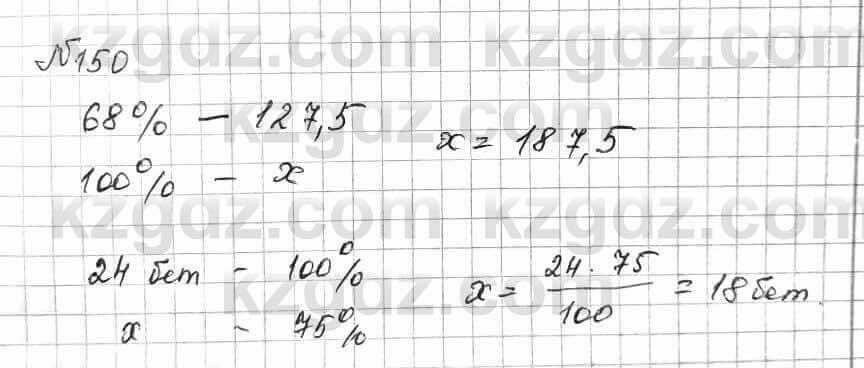 №150
68% — 127,5
100% — x
x = 187,5
24 бет - 100%
x - 75%
x = 24 · 75 / 100 = 18 бет.
kzgdz.com kzgdz.com
kzgdz.com
kzgdz.com kzgdz.com
kzgdz.com